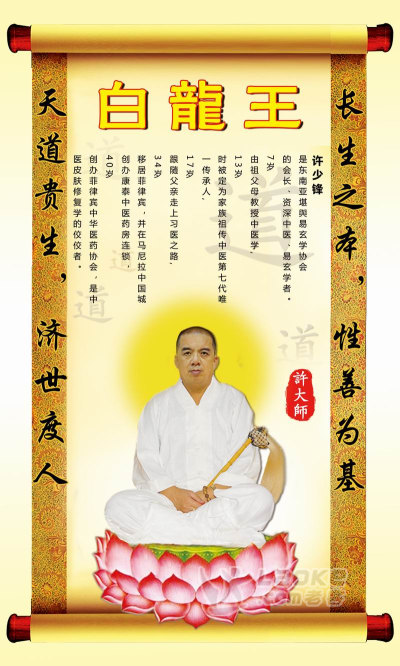 白龍王
长生之本，性善为基
许少锋
是东南亚堪舆易玄学协会
的会长、资深中医、易玄学者。
7岁
由祖父母教授中医学.
13岁
时被定为家族祖传中医第七代唯
一传承人.
17岁
跟随父亲走上习医之路.
34岁
移居菲律宾，并在马尼拉中国城
创办康泰中医药房连锁.
40岁
创办菲律宾中华医药协会，是中
医皮肤修复学的佼佼者。
天道贵生，济世度人
許大師
道
道
道
道
道